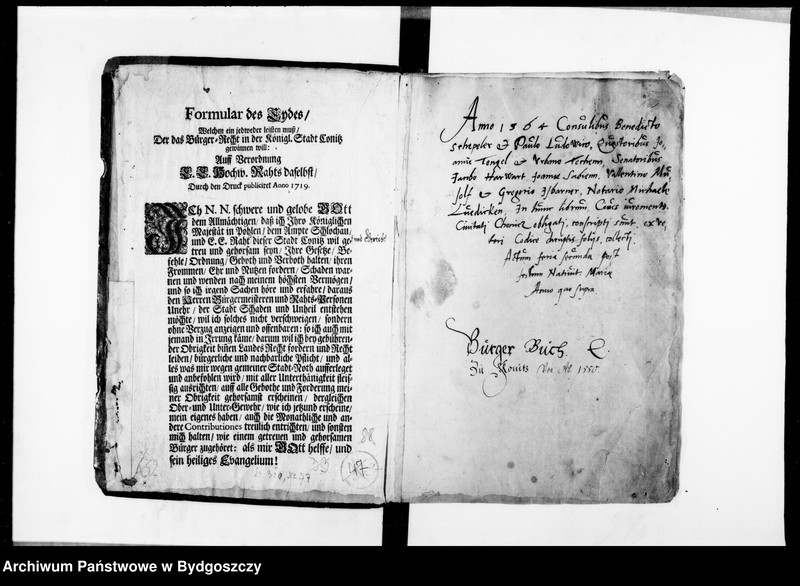 Formular des Eydes/
Welchen ein jedweder leisten muß/
Der das Bürger-Recht in der Königl. Stadt Conitz
gewinnen wil:
Auff Verordnung
E. E. Hochw. Rahts daselbst/
Durch den Druck publiciret Anno 1719.
ICh N. N. schwere und gelobe GOtt
dem Allmächtigen/ daß ich Ihro Königlichen
Majestät in Pohlen/ dem Ampte Schlochau/
und E. E. Raht dieser Stadt Conitz wil ge-
treu und gehorsam seyn/ Ihre Gesetze/ Be-
fehle/ Ordnung/ Geboth und Verboth halten/ ihren
Frommen/ Ehr und Nutzen fordern/ Schaden war-
nen und wenden nach meinem höchsten Vermögen/
und so ich irgend Sachen höre und erfahre/ daraus
den Herren Bürgermeisteren und Rahts-Personen
Unehr/ der Stadt Schaden und Unheil entstehen
möchte/ wil ich solches nicht verschweigen/ sondern
ohne Verzug anzeigen und offenbaren: so ich auch mit
jemand in Irrung käme/ darum wil ich bey gebühren-
der Obrigkeit bitten Landes Recht fordern und Recht
leiden/ bürgerliche und nachbarliche Pflicht/ und al-
les was mir wegen gemeiner Stadt-Noth aufferleget
und anbefohlen wird/ mit aller Unterthänigkeit fleis-
sig ausrichten/ auff alle Gebothe und Forderung mei-
ner Obrigkeit gehorsamst erscheinen/ dergleichen
Ober- und Unter-Gewehr/ wie ich jetzund erscheine/
mein eigenes haben/ auch die Monathliche und an-
dere Contributiones treulich entrichten/ und sonsten
mich halten/ wie einem getreuen und gehorsamen
Bürger zugehöret: als mir GOtt helffe/ und
sein heiliges Evangelium!
88
147
Anno 1564 Consulibus Benedicto
et Paulo Ludovico, Quæstoribus Jo-
anne et Urbano Senatoribus
Jacobo Harwart, Joanne Vallentino
et Gregorio Notario Michaele
In hunc librum Cives iuramento
Civitati obligati, conscripti sunt, ex ve-
teri Codice collecti.
Actum feria secunda post
festum Nativit. Mariæ
Anno quo supra
Bürger Buch
Zu Konitz Von Ao 1550.
Archiwum Państwowe w Bydgoszczy